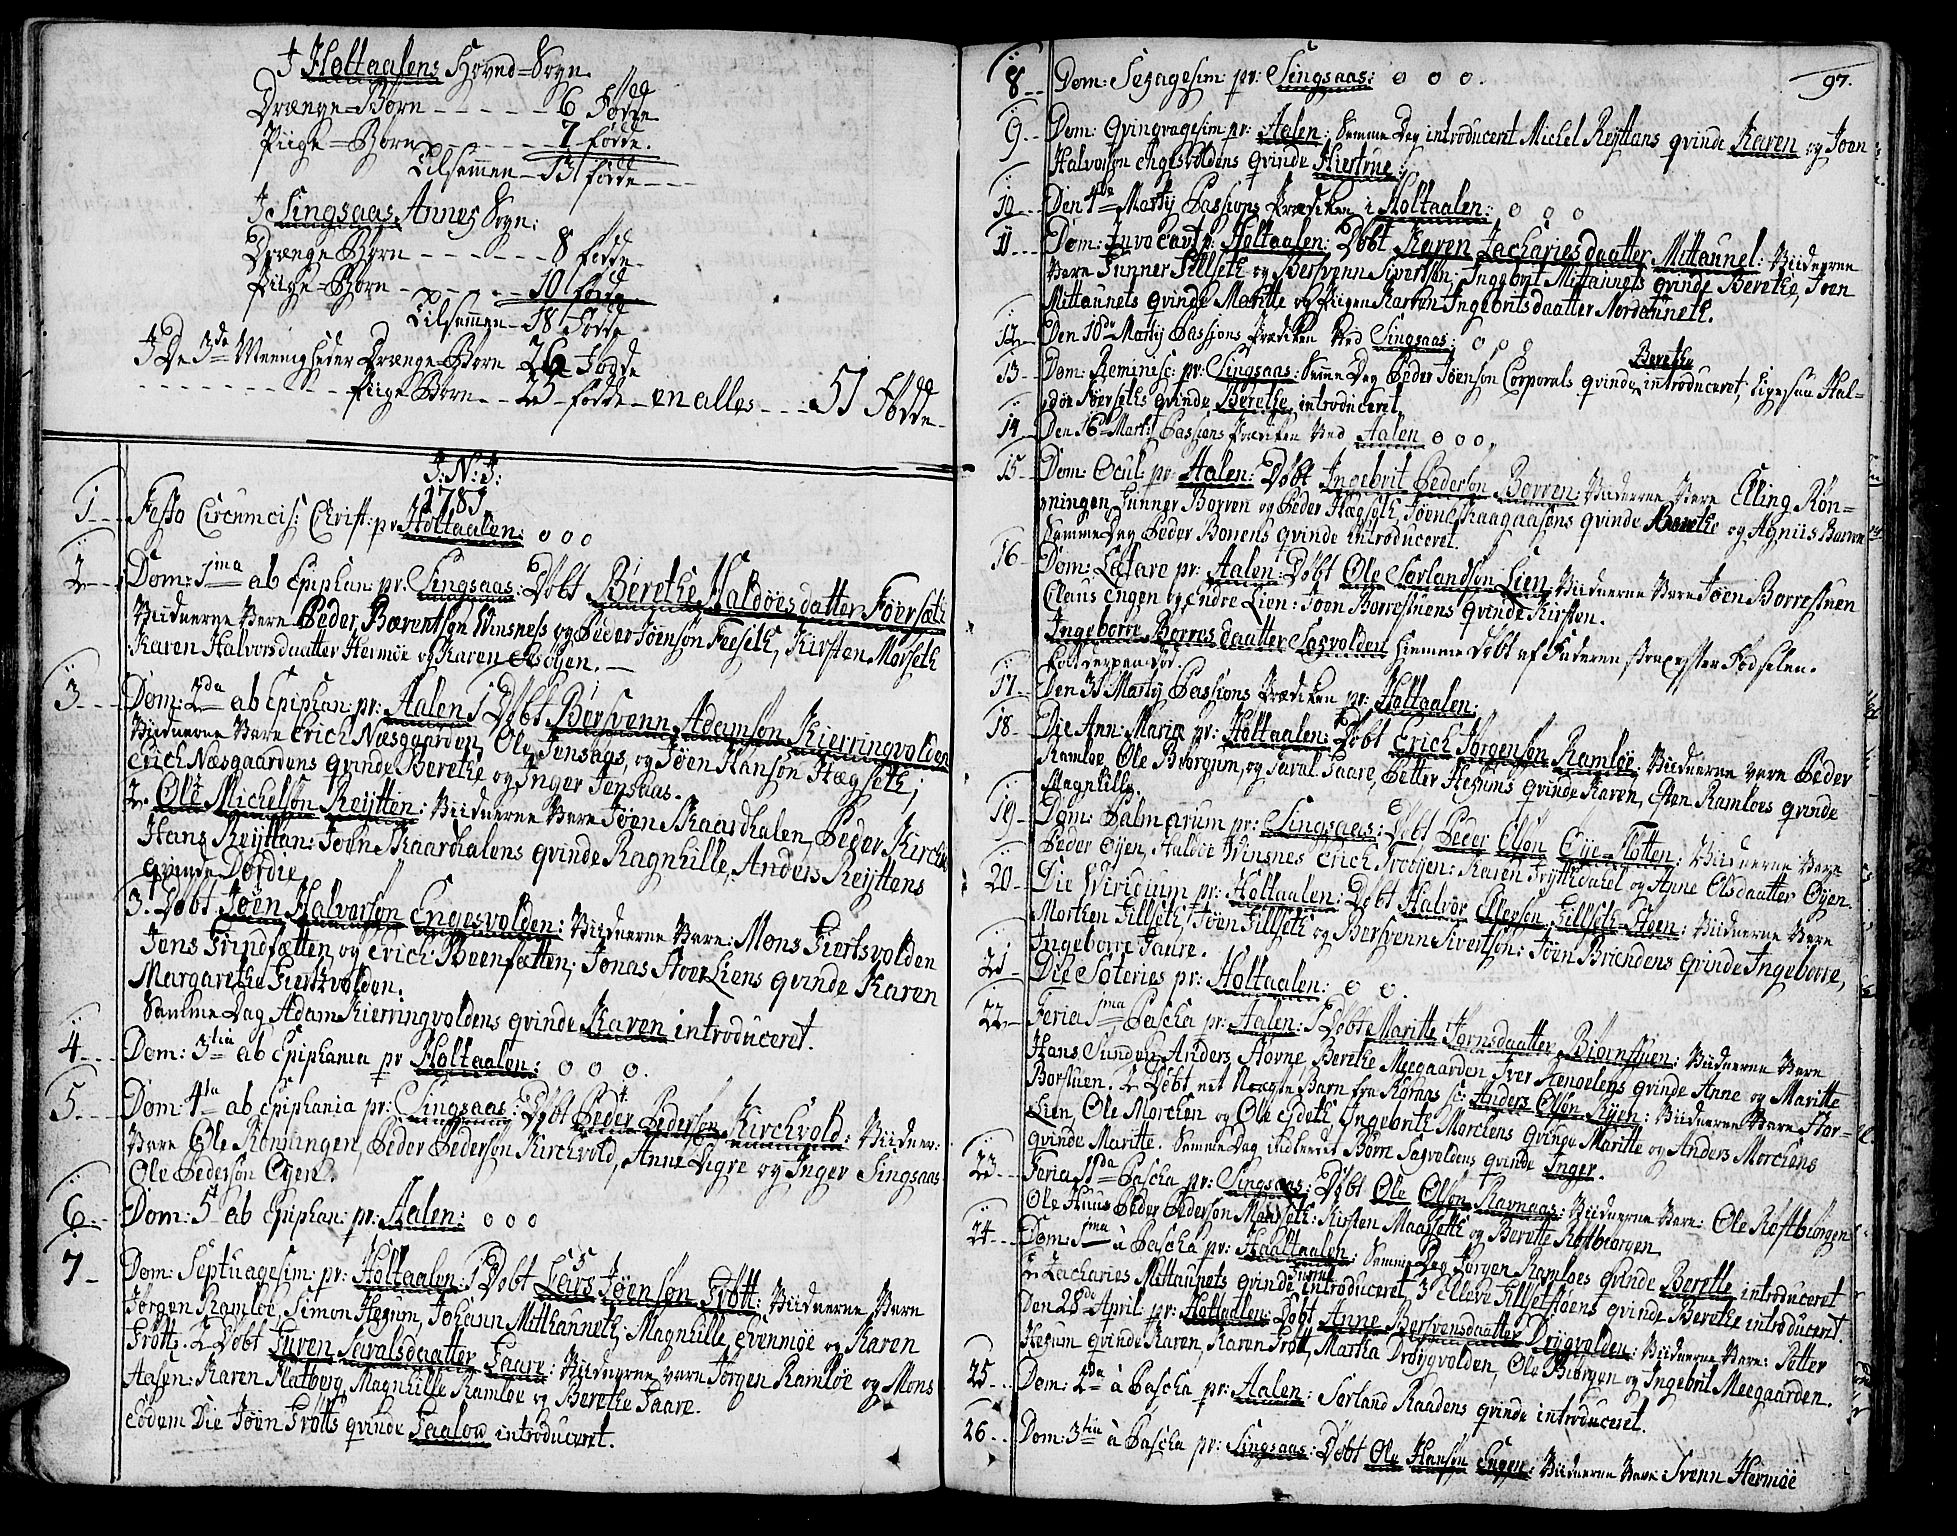 J Holtaalens Hoved=Sogn.
Drænge=Børn - - - - - - 6 Fødde
Piige=Børn - - - - - - 7 fødde.
Tilsammen - 13 fødde - - -
J Singsaas Annex Sogn:
Drænge Børn - - - - - - 8 fødde -
Piige=Børn - - - - - - 10 fødde
Tilsammen - 18 Fødde
J De 3de Meenigheder Drænge=Børn 26 Fødde
Piige Børn - - 25 fødde - en alles - - - 51 Fødde -
J: N: J:
1781
1 - - Festo Circumcis: Christ: pr Holtaalen: o o o
2 - - Dom: 1ma ab Epiphan: pr: Singsaas: Døbt Berethe Haldoesdatter Foersæth
Viidnerne Vare Peder Bærentsøn Winsness og Peder Jøensøn Feeseth, Kirsten Morseth
Karen Halvorsdaatter Hermøe og Karen Elsøyen. -
3 - - Dom: 2da ab Epiphan: pr: Aalen 1 Døbt Bersvenn Adamsøn Kierringvolden
Viidnerne Vare Erich Næsgaarden, Ole Jensaas, og Jøen Hansøn Hægseth;
Erich Næsgaardens qvinde Berethe og Inger Jensaas.
2. Ole Michelsøn Reytten: Viidnerne Vare Jøen Skaardhalen, Peder Kirche
Hans Reyttan: Joen Skaardhalens qvinde Ragnhille, Anders Reyttens
qvinde Dordie
3. Døbt Jøen Halvorsøn Engesvolden: Viidnerne Vare: Mons Hiertsvolden
Jens Grindsætten og Erich Beensætten, Jonas Hverkens qvinde Karen
Margarethe Hiertvolden.
Samme Dag Adam Kierringvoldens qvinde Karen introduceret.
4 - - Dom: 3tia ab Epiphania pr Holtaalen: o o o.
5 - - Dom: 4ta ab Epiphania pr: Singsaas: Døbt Peder Pedersøn Kirchvold: Viidner:
Vare Ole Rønningen, Peder Pedersøn Kirchvold, Anne Digre og Inger Singsaas
Ole Pedersøn Øyen.
6 - Dom: 5 ab Epiphan: pr: Aalen: o o o
7 - Dom: Septuagesim: pr: Holtaalen: 1 Døbt Lars Jøensøn Grøtt: Viidnerne Vare
Jørgen Ramløe, Simon Hegum, Johann Mitthanneth, Magnhille Evenmøe og Karen
Grøtt: 2 Døbt Guren Saralsdaatter Gaare: Viidnerne vare Jørgen Ramløe og Mons
Aasen: Karen Flatberg, Magnhille Ramløe og Berethe Gaare.
eodem Die Jøen Grøtts qvinde Gaalow introduceret.
97.
8 - - Dom: Sexagesim: pr: Singsaas: o o o.
9 - Dom: Qvinqvagesim pr: Aalen: Samme Dag introducert Michel Reyttans qvinde Karen og Joen
Halvorsøn Engesvoldens qvinde Hiertrue:
10 - Den 4de Martij Passions Prædiken i Holtaalen: o o o
11 - - Dom: Invocavt p: Holtaalen: Døbt Karen Zachariesdaatter Mittaunet: Viidnerne
Vare Gunner Gillseth og Bersvenn Sivertsøn, Ingebrit Mittaunets qvinde Berethe, Joen
Mittaunets qvinde Maritte og Piigen Karren Ingebritsdaatter Nordauneth.
12 - Den 10de Martij Passions Prædiken Ved Singsaas: o o o
13 - Dom: Reminisc: pr: Singsaas: Samme Dag Peder Jøensøn Corporals qvinde Berethe introduceret, Ligesaa Hal=
døe Foerseths qvinde Berethe introduceret.
14 - Den 16de Martij Passions Prædiken Ved Aalen o o o.
15 - Dom: Ocul: pr: Aalen: Døbt Ingebrit Pedersøn Borren: Viidnerne Vare Elling Røn=
ningen, Gunner Borren og Peder Hægseth, Joen Skaagaasens qvinde Berethe og Agniis Barren
Samme Dag Peder Borrens qvinde introduceret.
16 - Dom: Lætare pr: Aalen: Døbt Ole Sørlandsøn Lien: Viidnerne Vare Jøen Borrestuen
Claus Engen og Endre Lien: Joen Borrestuens qvinde Kirsten.
Ingeborre Borresdaatter Sagvolden Hiemme Døbt af Faderen strax efter Fødselen.
17 - Den 31 Martij Passions Prædiken pr: Holtaalen:
18 - Die Ann: Mariæ pr: Holtaalen: Døbt Erich Jørgensøn Ramløe: Viidnerne vare Peder
Ramløe, Ole Biørgum, og Saral Gaare, Petter Hegums qvinde Karen, Esten Ramloes qvinde
Magnhille.
19 - Dom: Palmarum pr: Singsaas: Døbt Peder Elsøn Øye=Flotten: Viidnerne Vare
Peder Øyen, Haldoe Winsnes Erich Foeøyen: Karen Frytthdahl og Anne Elsdaatter Øyen.
20 - Die Viridium pr: Holtaalen: Døbt Halvor Ellevsøn Gillseth=Støen: Viidnerne Vare
Morten Gillseth, Jøen Gillseth og Bersvenn Sivertsøn: Jøen Brændens qvinde Ingeborre,
Ingeborre Gaare.
21 - Die Soteries pr: Holtaalen: o o.
22 - Feria 1ma Pascha pr: Aalen: 1 Døbt Maritte Jørnsdaatter Biørnstuen: Viidnerne Vare
Hans Sunden, Anders Hovne Berethe Meegaarden, Iver Hengelens qvinde Anne og Maritte
Borstuen. 2 Døbt et Uægte Barn fra Røraas sc: Anders Olsøn Ryen: Viidnerne Vare Hor=
Lien, Ole Morchen og Ole Egdeth, Ingebrit Morchens qvinde Maritte og Anders Morchens
qvinde Maritte. Samme Dag indleedet Børre Sagvoldens qvinde Inger.
23 - Feria 2da Pascha pr: Singsaas: Døbt Ole Olsøn Ravnaas: Viidnerne Vare: Ole Røstbiørgen
Ole Huus Peder Pedersøn Maaseth: Kirsten Maaseth og Berette Røstbiørgen
24 - - Dom: 1ma à Pascha pr: Haaltaalen: Samme Dag Jørgen Ramloes qvinde Berette introduceret
2 Zacharies Mittaunets qvinde introduceret, 3 Elleve Gillsetstøens qvinde Berethe introduceret
Den 28de April pr: Holtaalen: Døbt Anne Bersvensdaatter Drøyvolden: Viidnerne Vare: Petter
Hegum qvinde Karen, Karen Grøtt, Martha Drøygvolden, Ole Biørgen og Ingebrit Meegaarden.
25 - Dom: 2da à Pascha pr: Aalen: Sørland Raadens qvinde introduceret.
26 - - Dom: 3tia à Pascha pr: Singsaas: Døbt Ole Hansøn Engen: Viidnerne Vare: Svenn Hermøe